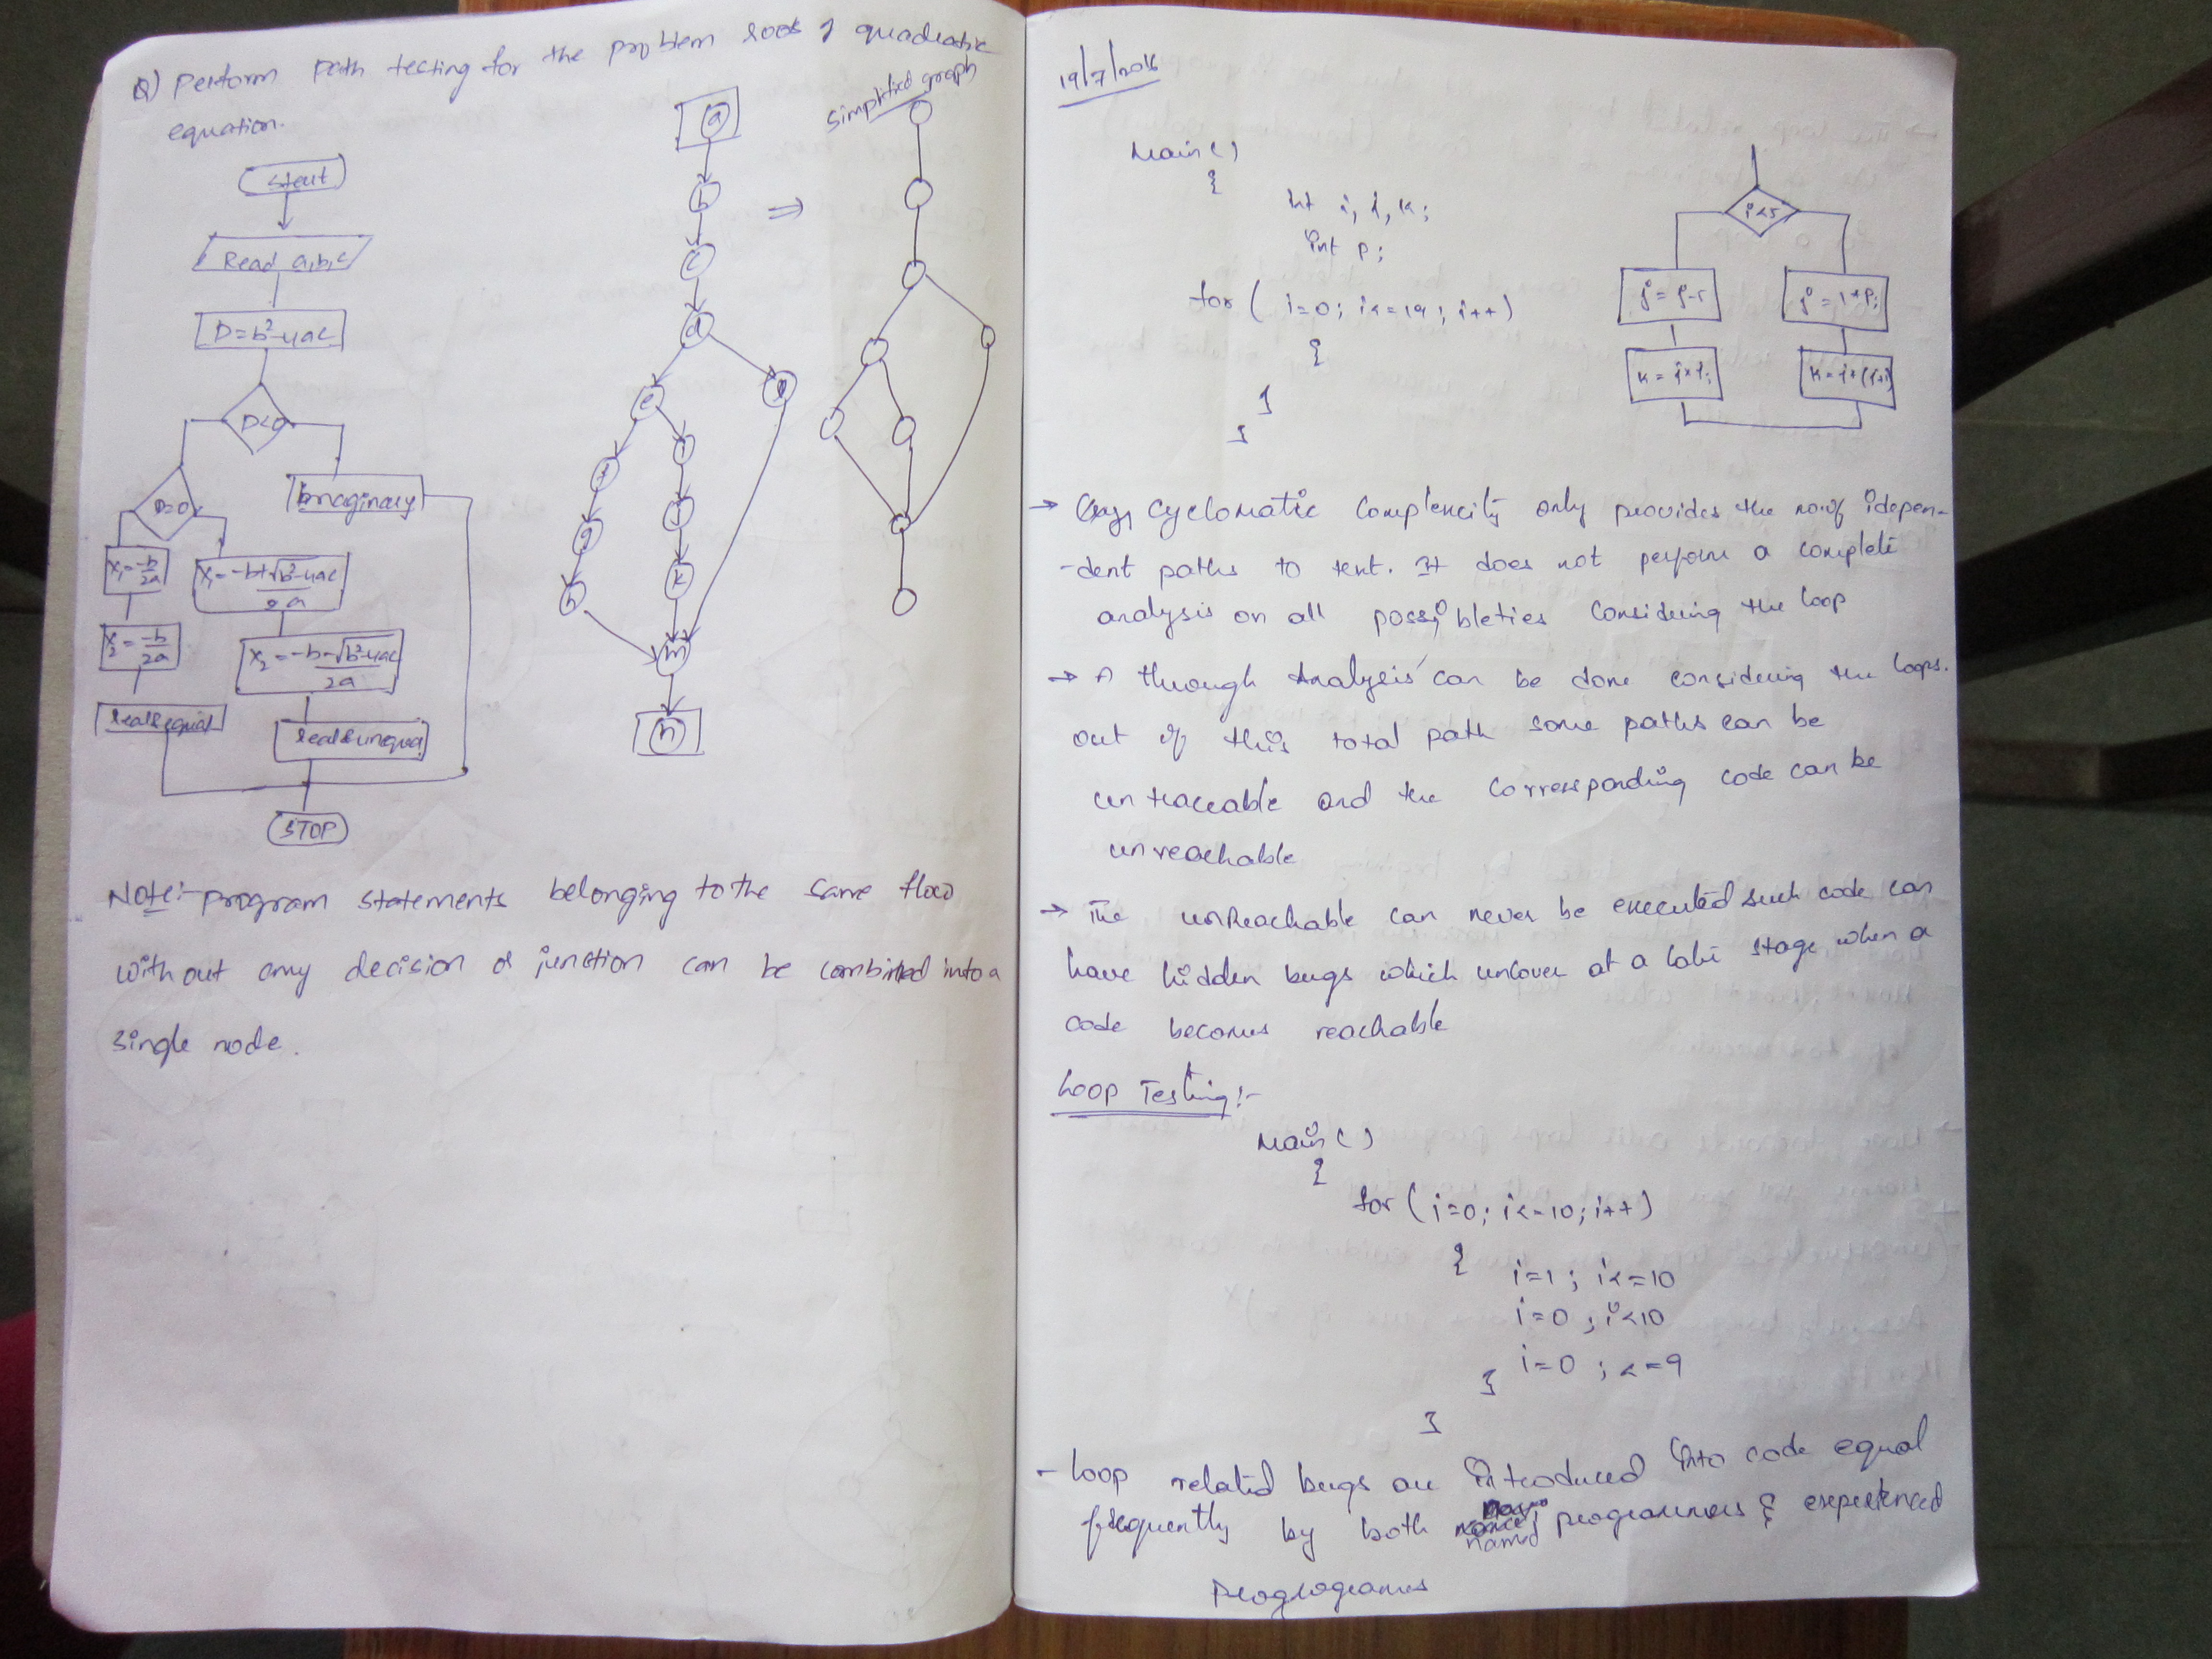 Q) perform path testing for the problem roots of quadratic
equation.
simplified graph
Start
Read a,b,c
D=b²-4ac
D<0
Imaginary
D=0
X₁=-b/2a
X₁=-b+√b²-4ac/2a
X₂=-b/2a
X₂=-b-√b²-4ac/2a
real & equal
real & unequal
STOP
a
b
c
d
e
l
f
i
g
j
h
k
m
n
⇒
Note:- program statements belonging to the same flow
with out any decision or junction can be combined into a
single node.
19/7/2016
Main()
{
int i, j, k;
int p;
for (i=0; i<=19; i++)
{
}
}
i<5
k=i*j;
→ Cyclomatic complexity only provides the no of indepen-
-dent paths to test. It does not perform a complete
analysis on all possibleties considering the loop
→ A through Analysis can be done considering the loops.
out of this total path some paths can be
untraceable and the corresponding code can be
unreachable
→ The unReachable can never be executed such code can
have hidden bugs which uncover at a later stage when a
code becomes reachable
Loop Testing :-
Main()
{
for (i=0; i<=10; i++)
{
i=1; i<=10
i=0; i<10
i=0; <=9
}
}
- loop related bugs are introduced into code equal
frequently by both programmers & experienced
programers